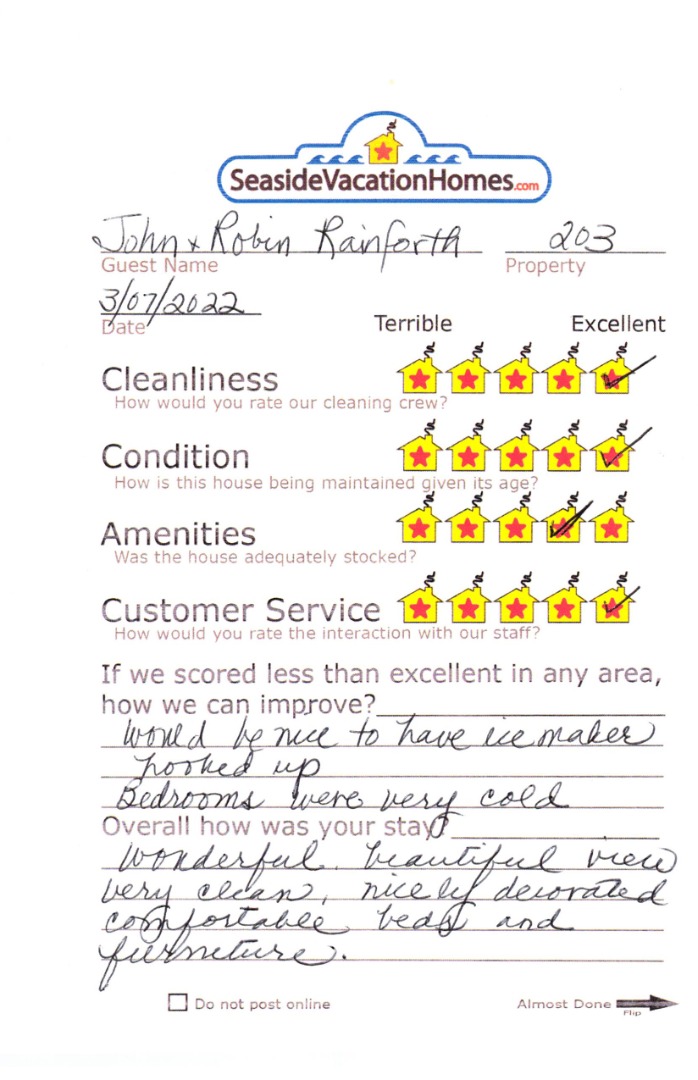 SeasideVacationHomes.com
John + Robin Rainforth 203
Guest Name Property
3/07/2022
Date
Terrible Excellent
Cleanliness
How would you rate our cleaning crew?
Condition
How is this house being maintained given its age?
Amenities
Was the house adequately stocked?
Customer Service
How would you rate the interaction with our staff?
If we scored less than excellent in any area,
how we can improve?
Would be nice to have ice maker
hooked up
Bedrooms were very cold
Overall how was your stay?
Wonderful. beautiful view
very clean, nicely decorated
comfortable beds and
furneture.
Do not post online Almost Done
Flip